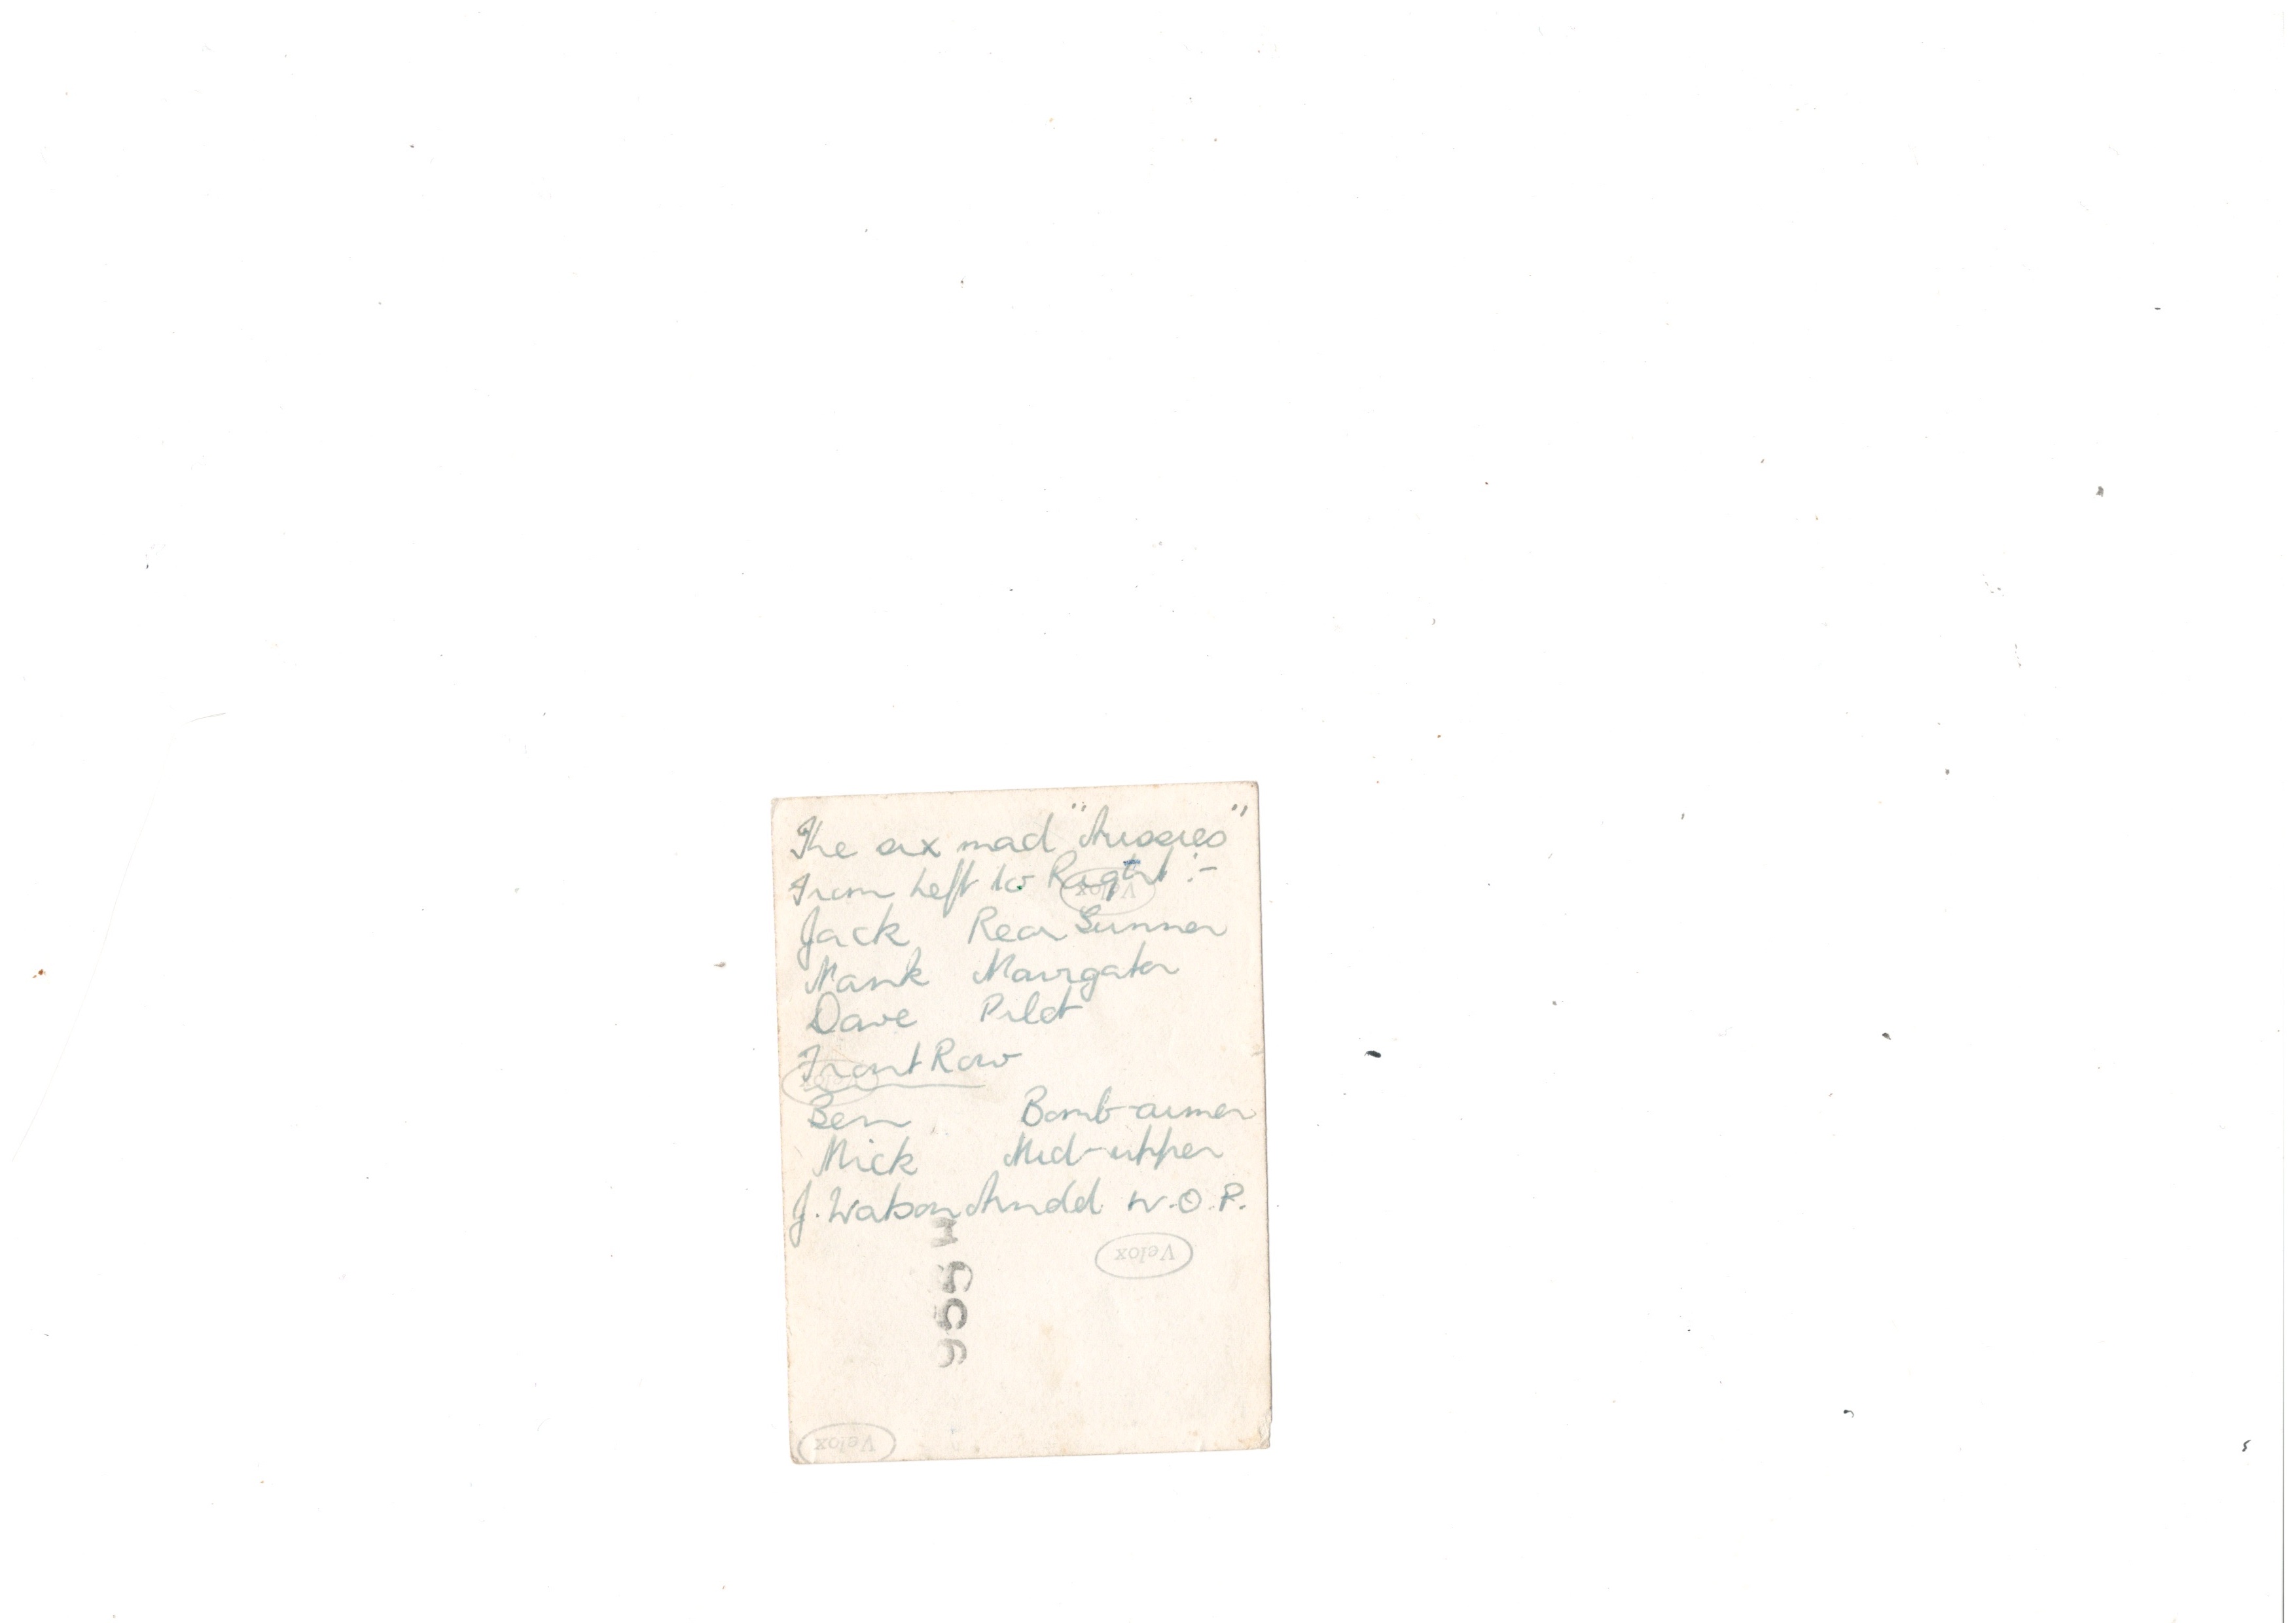 The six mad "Aussies"
From Left to Right :-
Velox
Jack Rear Gunner
Navigator
Dave Pilot
Front Row
Velox
Ben Bomb-aimer
Mick Mid-upper
J. Watson W.O.P.
Velox
Velox